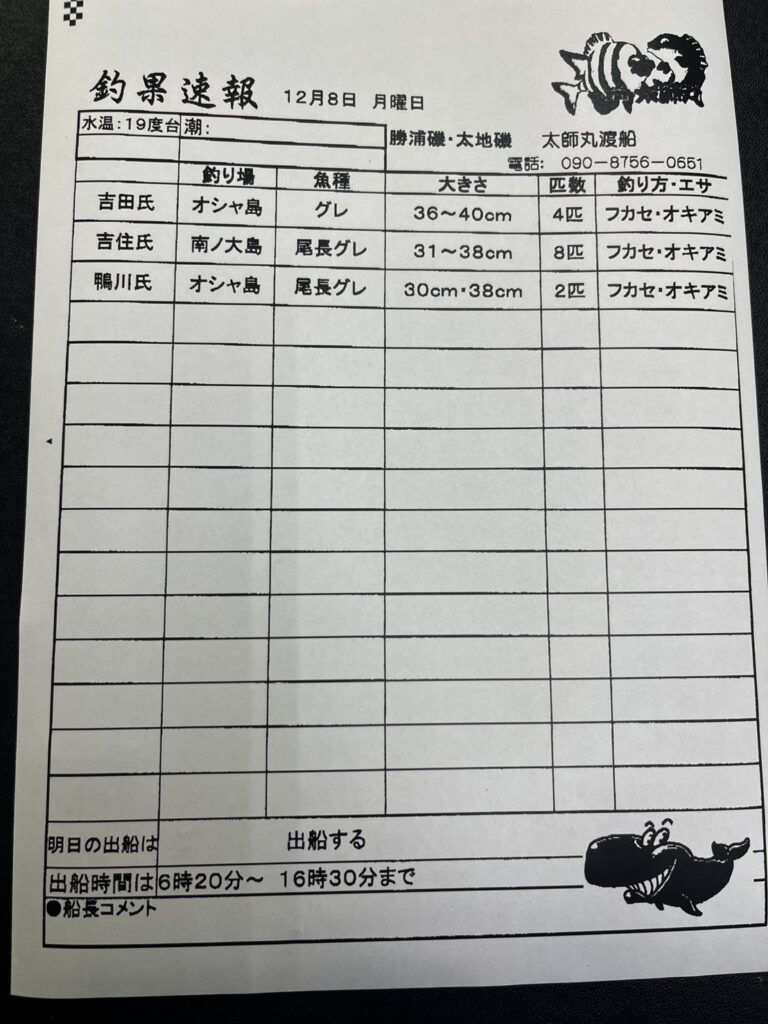 釣果速報 12月8日 月曜日
太師丸
水温:19度台 潮:
勝浦磯・太地磯 太師丸渡船
電話: 090-8756-0651
釣り場 魚種 大きさ 匹数 釣り方・エサ
吉田氏 オシャ島 グレ 36～40cm 4匹 フカセ・オキアミ
吉住氏 南ノ大島 尾長グレ 31～38cm 8匹 フカセ・オキアミ
鴨川氏 オシャ島 尾長グレ 30cm・38cm 2匹 フカセ・オキアミ
明日の出船は 出船する
出船時間は6時20分～ 16時30分まで
●船長コメント